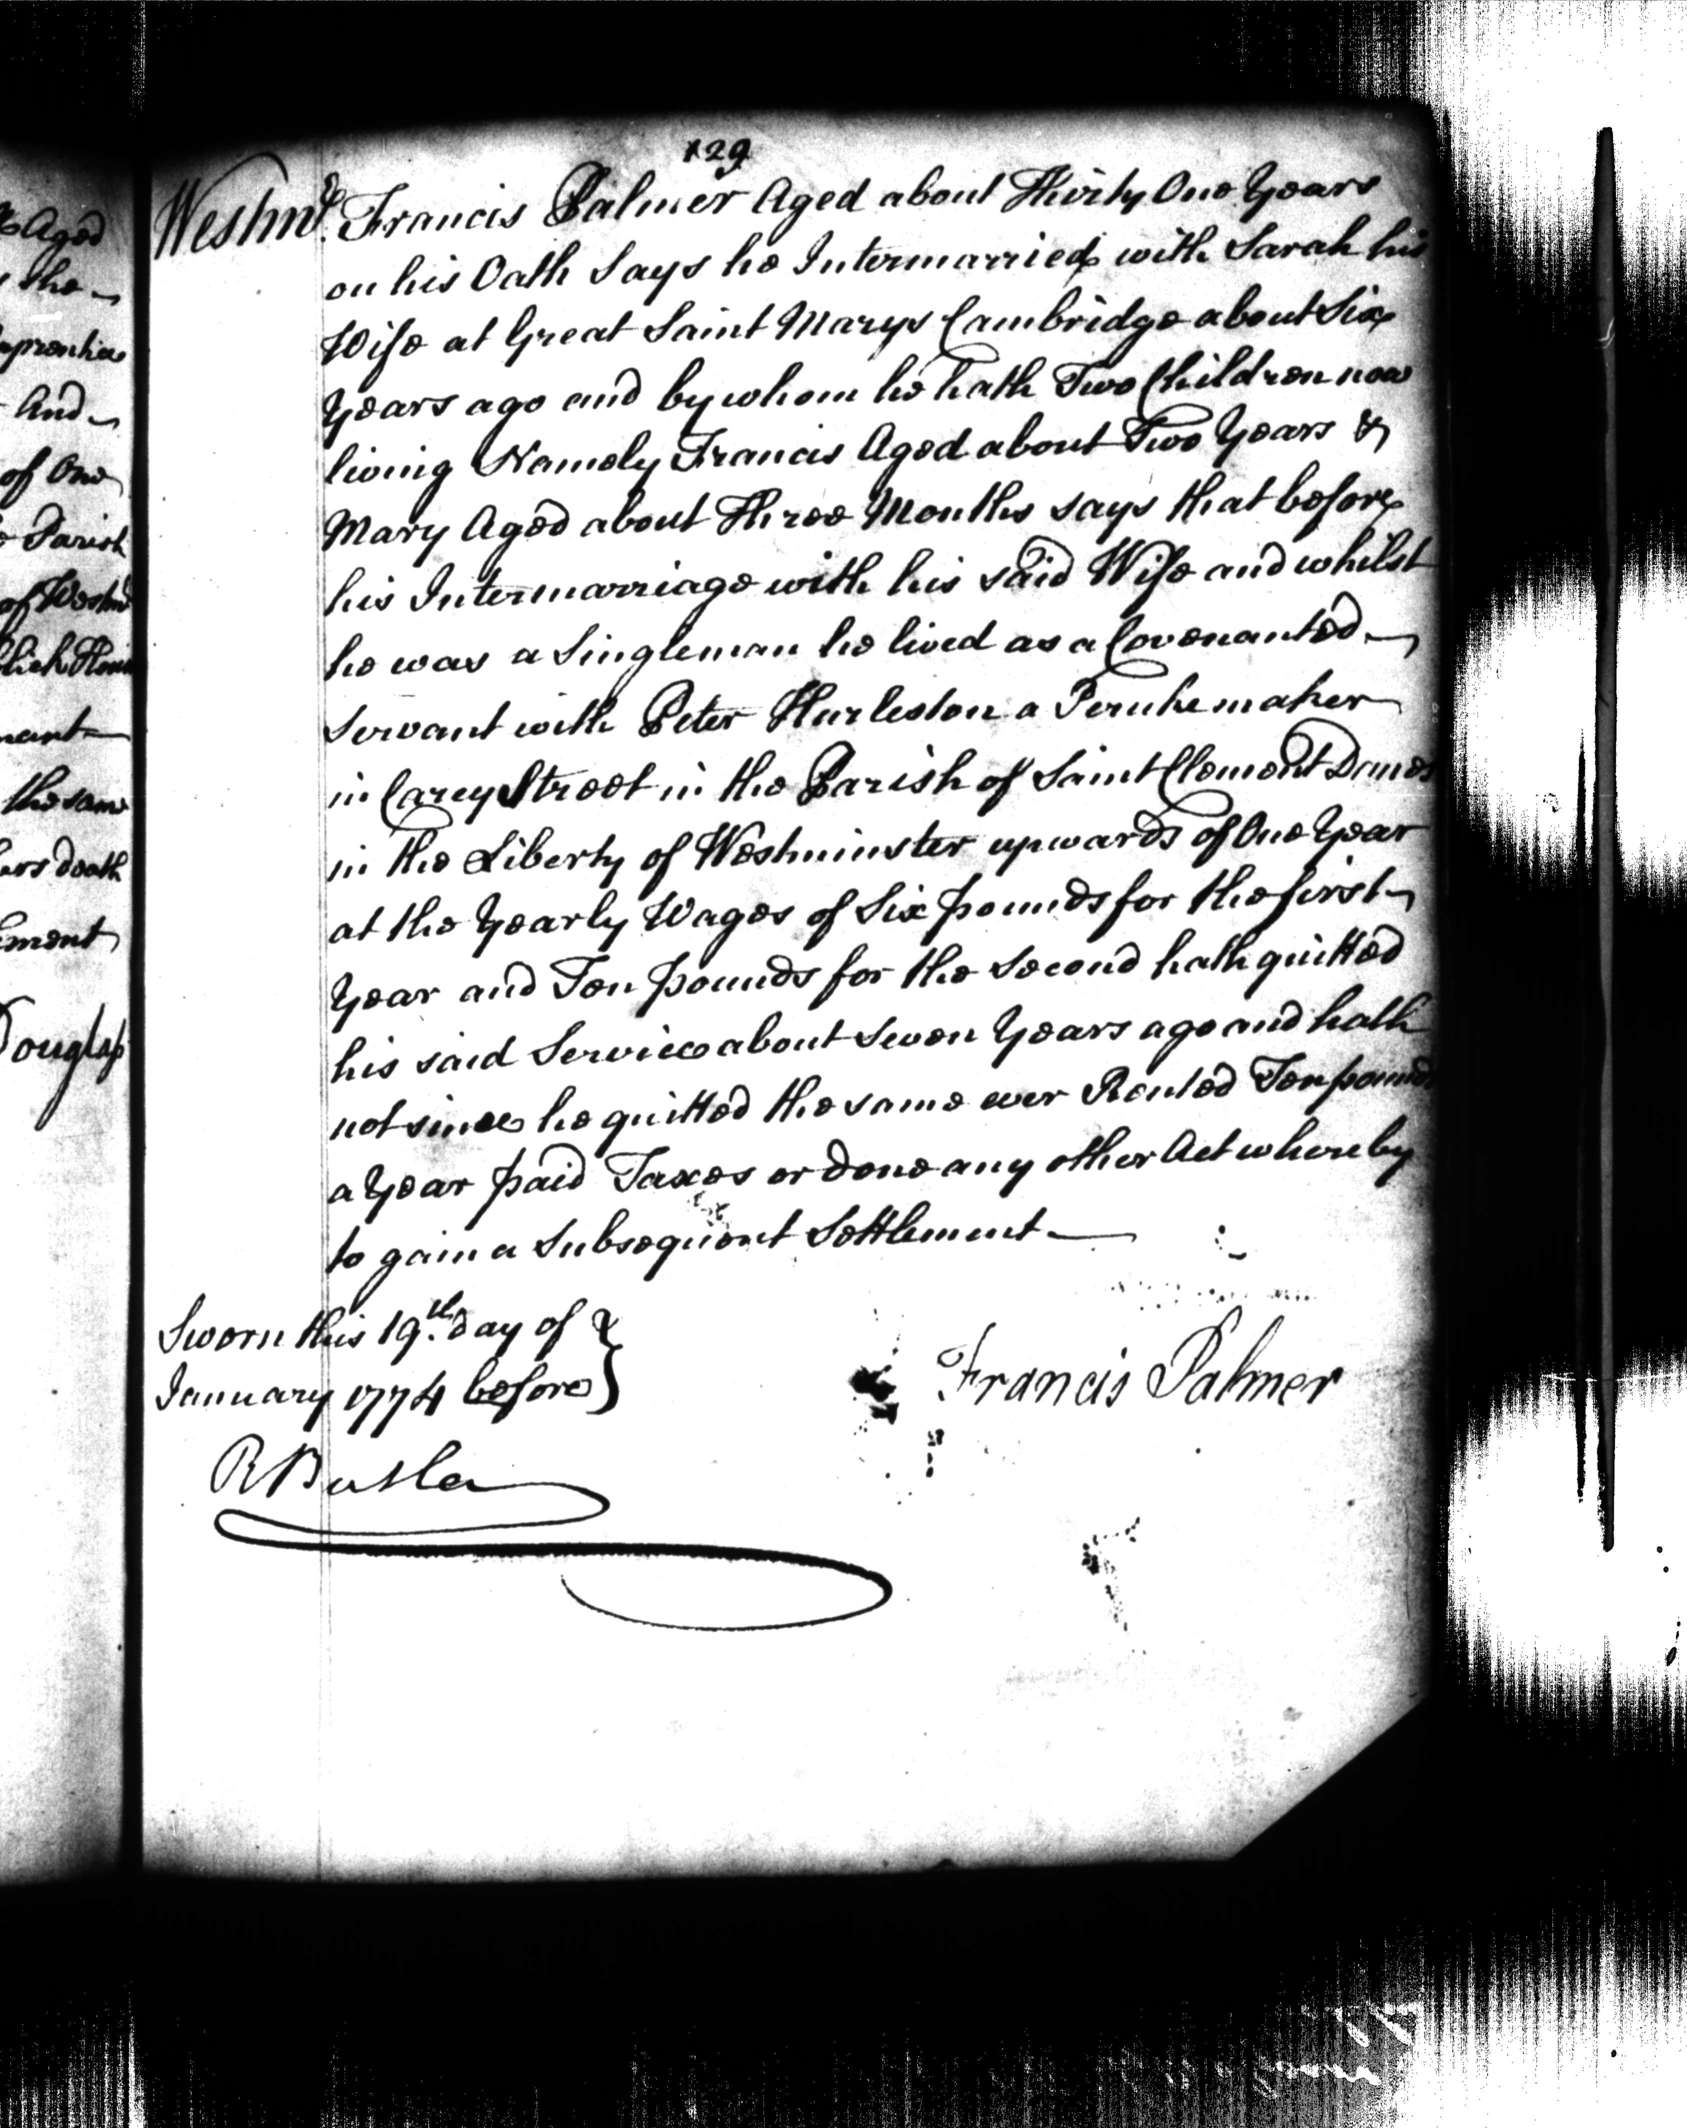 129
Westmr. Francis Palmer Aged about Thirty One Years
on his Oath Says he Intermarried with Sarah his
Wife at Great Saint Marys Cambridge about Six
Years ago and by whom he hath Two Children now
living Namely Francis Aged about Two Years &
Mary Aged about Three Months says that before
his Intermarriage with his said Wife and whilst
he was a Singleman he lived as a Covenanted
Servant with Peter Hurleston a Perukemaker
in Carey Street in the Parish of Saint Clement Danes
in the Liberty of Westminster upwards of One Year
at the Yearly Wages of Six pounds for the first
Year and Ten pounds for the Second hath quitted
his said Service about Seven Years ago and hath
not since he quitted the same ever Rented Ten pounds
a Year paid Taxes or done any other Act whereby
to gain a Subsequent Settlement
Sworn this 19th. day of
January 1774 before
Francis Palmer
R Butler
Aged
the
And
of One
Parish
of Westmr
the same
death
Douglass